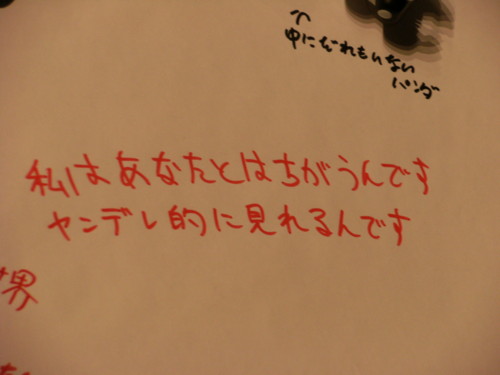 中にだれもいない
パンダ
私はあなたとはちがうんです
ヤンデレ的に見れるんです
界